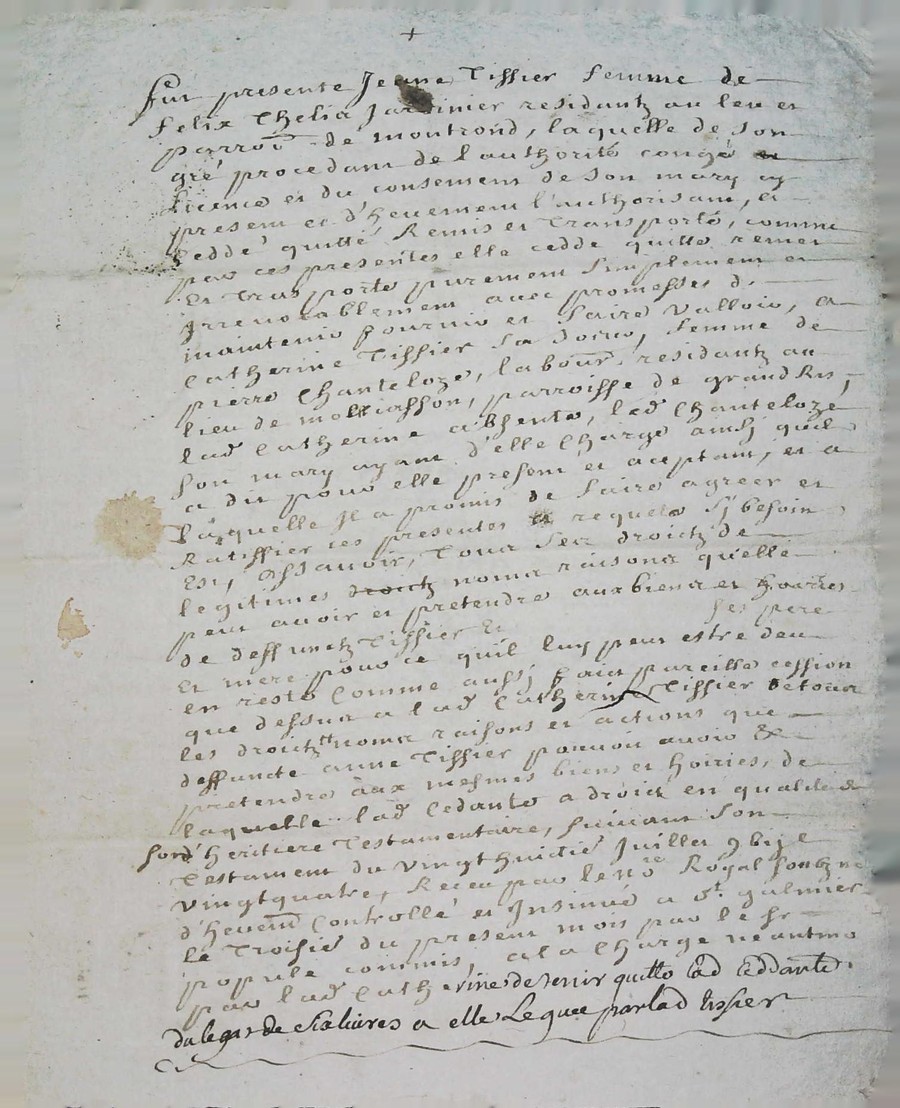 +
Fut presente Jeane Tissier femme de
Felix Thelia Jardinier residantz au lieu et
parroi de montrond, laquelle de son
gré procedant de l'authorité congé
licence et du consement de son mary cy
present et d'heuement l'authorisant, a
ceddé quitté Remis et Transporté, comme
par ces presentes elle cedde quitte remet
Et Transporte purement simplement et
Irreuocablement auec promesses de
maintenir fournir et faire valloir, a
Catherine Tissier sa soeur, femme de
pierre Chanteloze, labour residantz au
lieu de parroisse de grandRis,
lad Catherine absente, led Chanteloze
son mary ayant d'elle charge ainsj quil
a dit pour elle present et aceptant, et a
laquelle Jl a promis de faire agreer et
Ratiffier ces presentes requeta sj besoin
Est, assavoir, Tous ses droictz de
legitimes noms raisons qu'elle
peut auoir et pretendre aux biens et hoiries
de deffunctz Tissier Et ses pere
Et mere pour ce quil luy peut estre deu
en reste Comme aussj fait pareille cession
que dessus a lad Catherine Tissier de tous
les droictz noms raisons et actions que
deffuncte anne Tissier pouuoit auoir &
pretendre aux mesmes biens et hoiries, de
laquelle lad Cedante a droict en qualité de
son d'heritiere Testamentaire, suiuant son
Testament du vingthuictie Juillet
vingtquatre, Receu par le no Royal
d'heuemt Controllé et Insinué a st galmier
le Troisie du present mois par le sr
popule commis, a la charge neantmo
par lad Catherine de tenir quitte lad Ceddante
du legat de a elle Legué par lad tissier